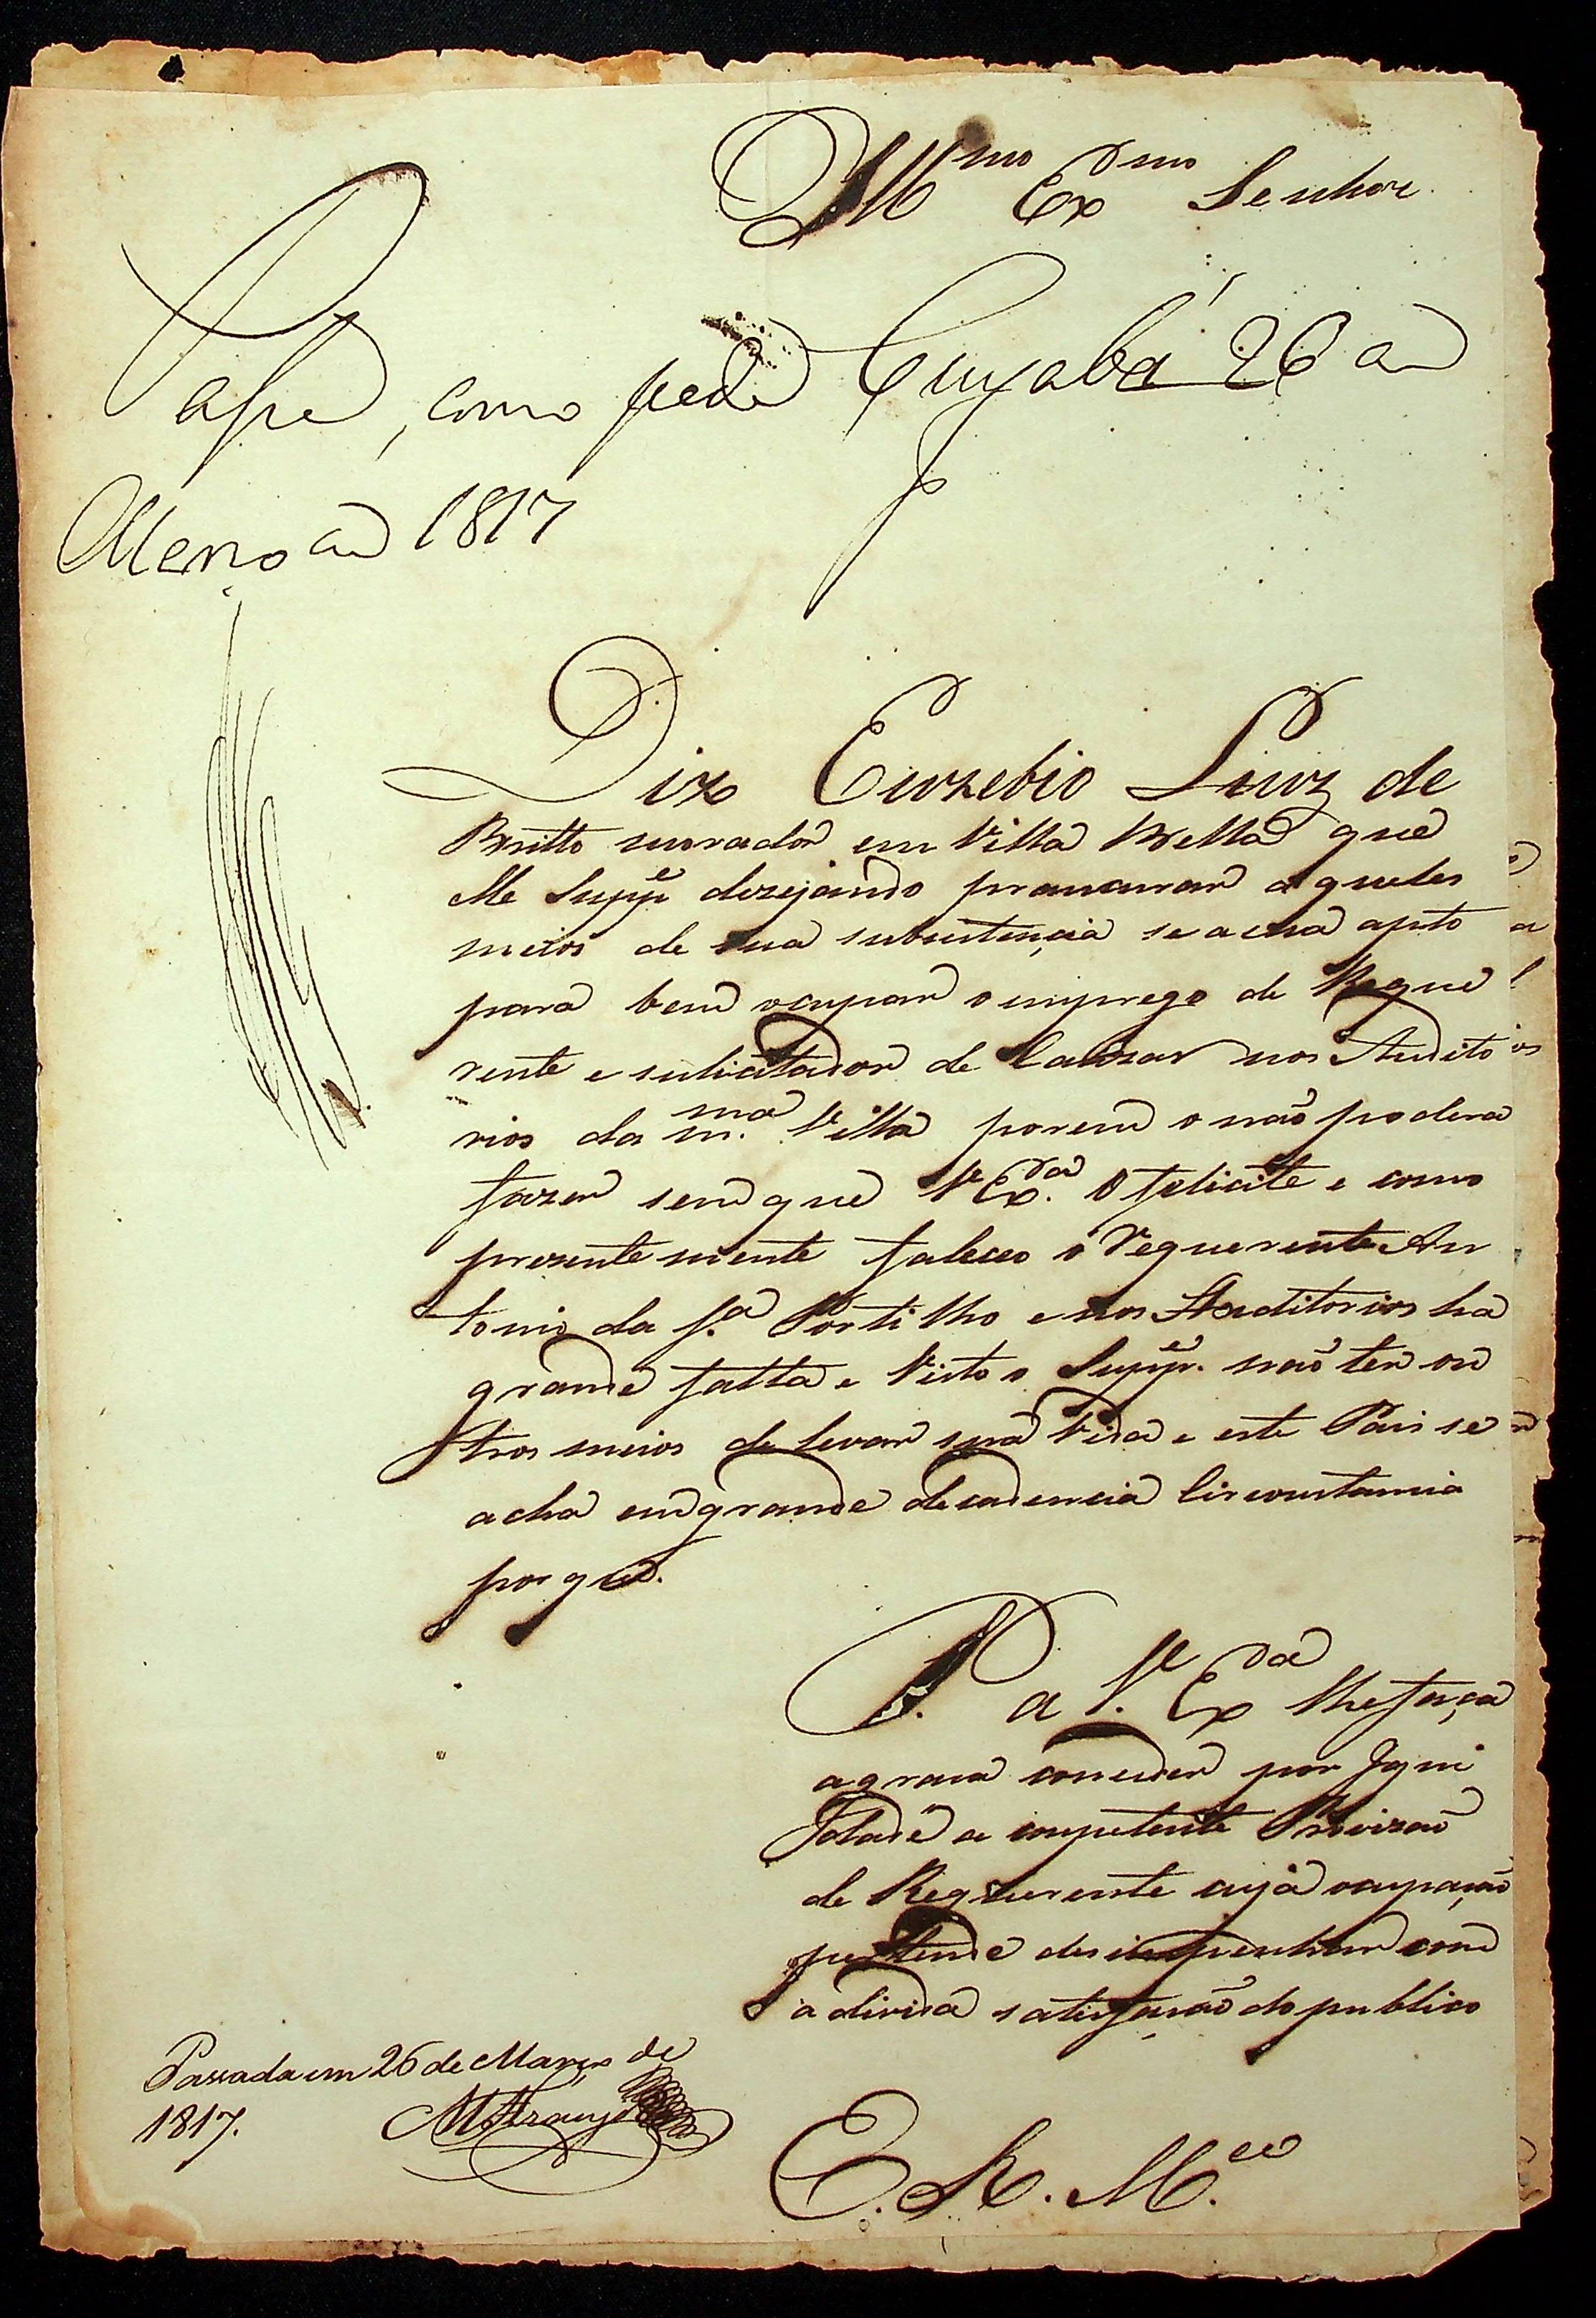 Ill.mo Ex.mo Senhor
Passe, como pede Cuyabá 26 de
Março de 1817
Diz Euzebio Luiz de
Britto morador em Villa Bella que
elle Supp.e dezejando prancurar aqueles
meios de sua subsistencia se acha apto
para bem ocupar o emprego de Reque
rente e sulicitador de Cauzas nos Audito
rios da m.ma Villa porem o não podera
fazer sem que V. Ex.ca o felicite e como
prezentemente faleceo o Requerente An
tonio da S.a Portilho e nos Auditorios ha
grande falta e Visto o Supp.e não ter ou
tros meios de levar sua Vida e este Pais se
acha em grande decadencia Circonstancia
por que.
P. a V. Ex.ca lhe faça
a graça conceder por
a competente Provizão
de Requerente cuja ocupação
pertende desimpenhar com
a divida satisfação do publico
Passada em 26 de Março de
1817.
MAraujo
E. R. M.ce